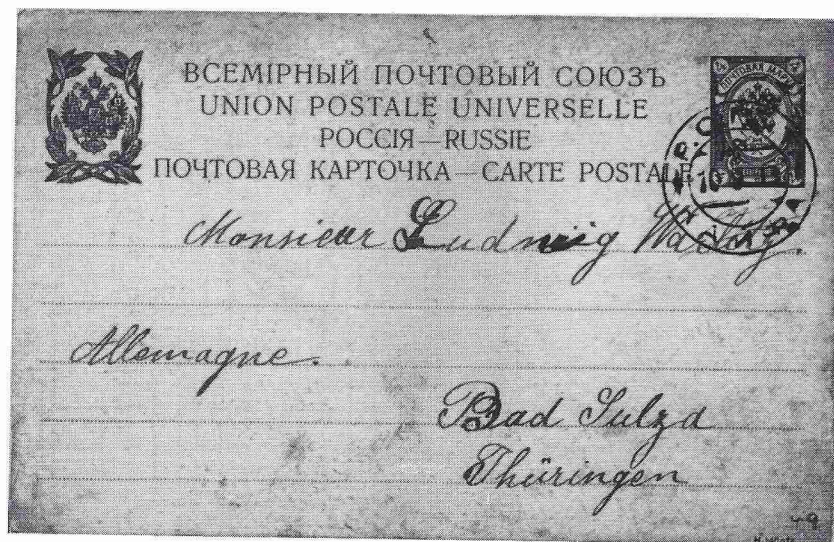 ВСЕМІРНЫЙ ПОЧТОВЫЙ СОЮЗЪ
UNION POSTALE UNIVERSELLE
РОССІЯ—RUSSIE
ПОЧТОВАЯ КАРТОЧКА—CARTE POSTALE
ПОЧТОВАЯ МАРКА
Monsieur Ludwig
Allemagne.
Bad Sulza
Thüringen
49